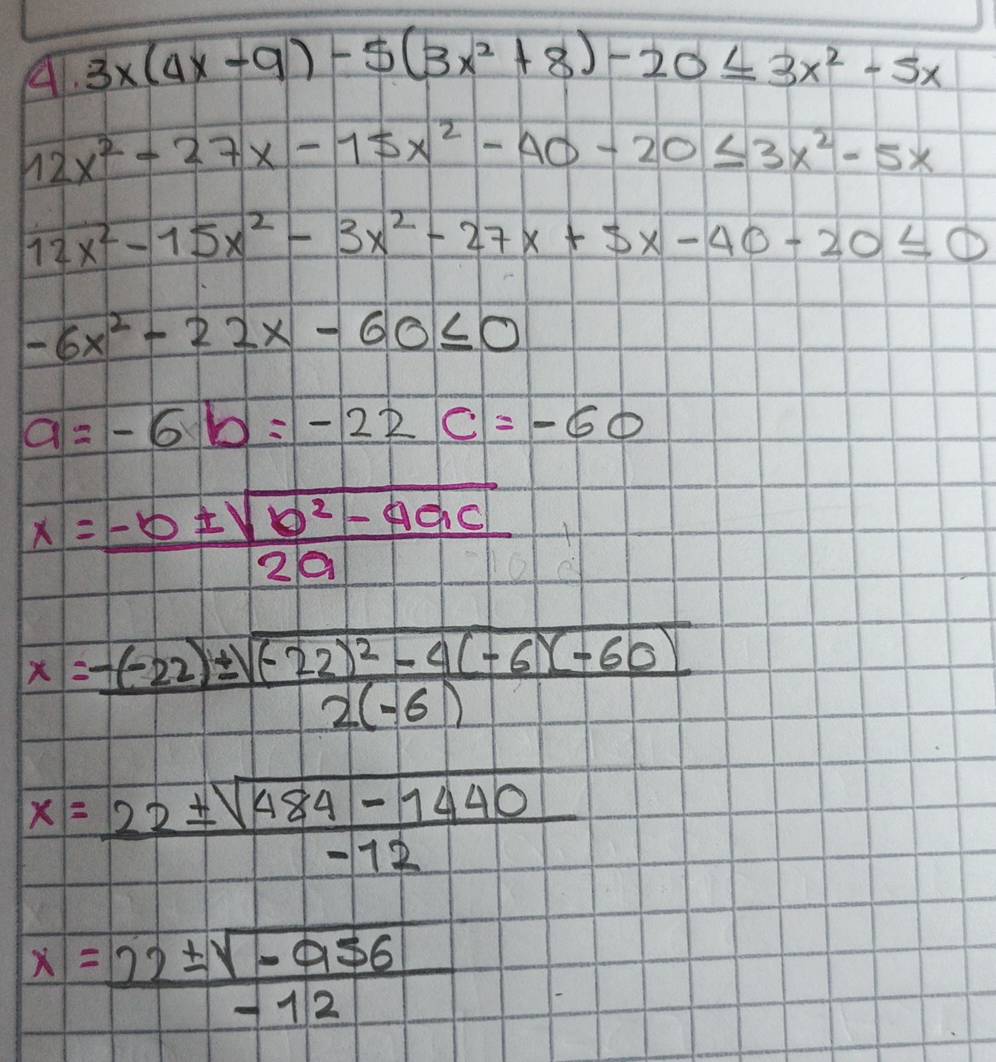 4. 3x(4x-9)-5(3x²+8)-20≤3x²-5x
12x²-27x-15x²-40-20≤3x²-5x
12x²-15x²-3x²-27x+5x-40-20≤0
-6x²-22x-60≤0
a=-6 b=-22 c=-60
x = -b±√b²-4ac
2a
x = -(-22)±√(-22)²-4(-6)(-60)
2(-6)
x = 22±√484-1440
-12
x = 22±√-956
-12